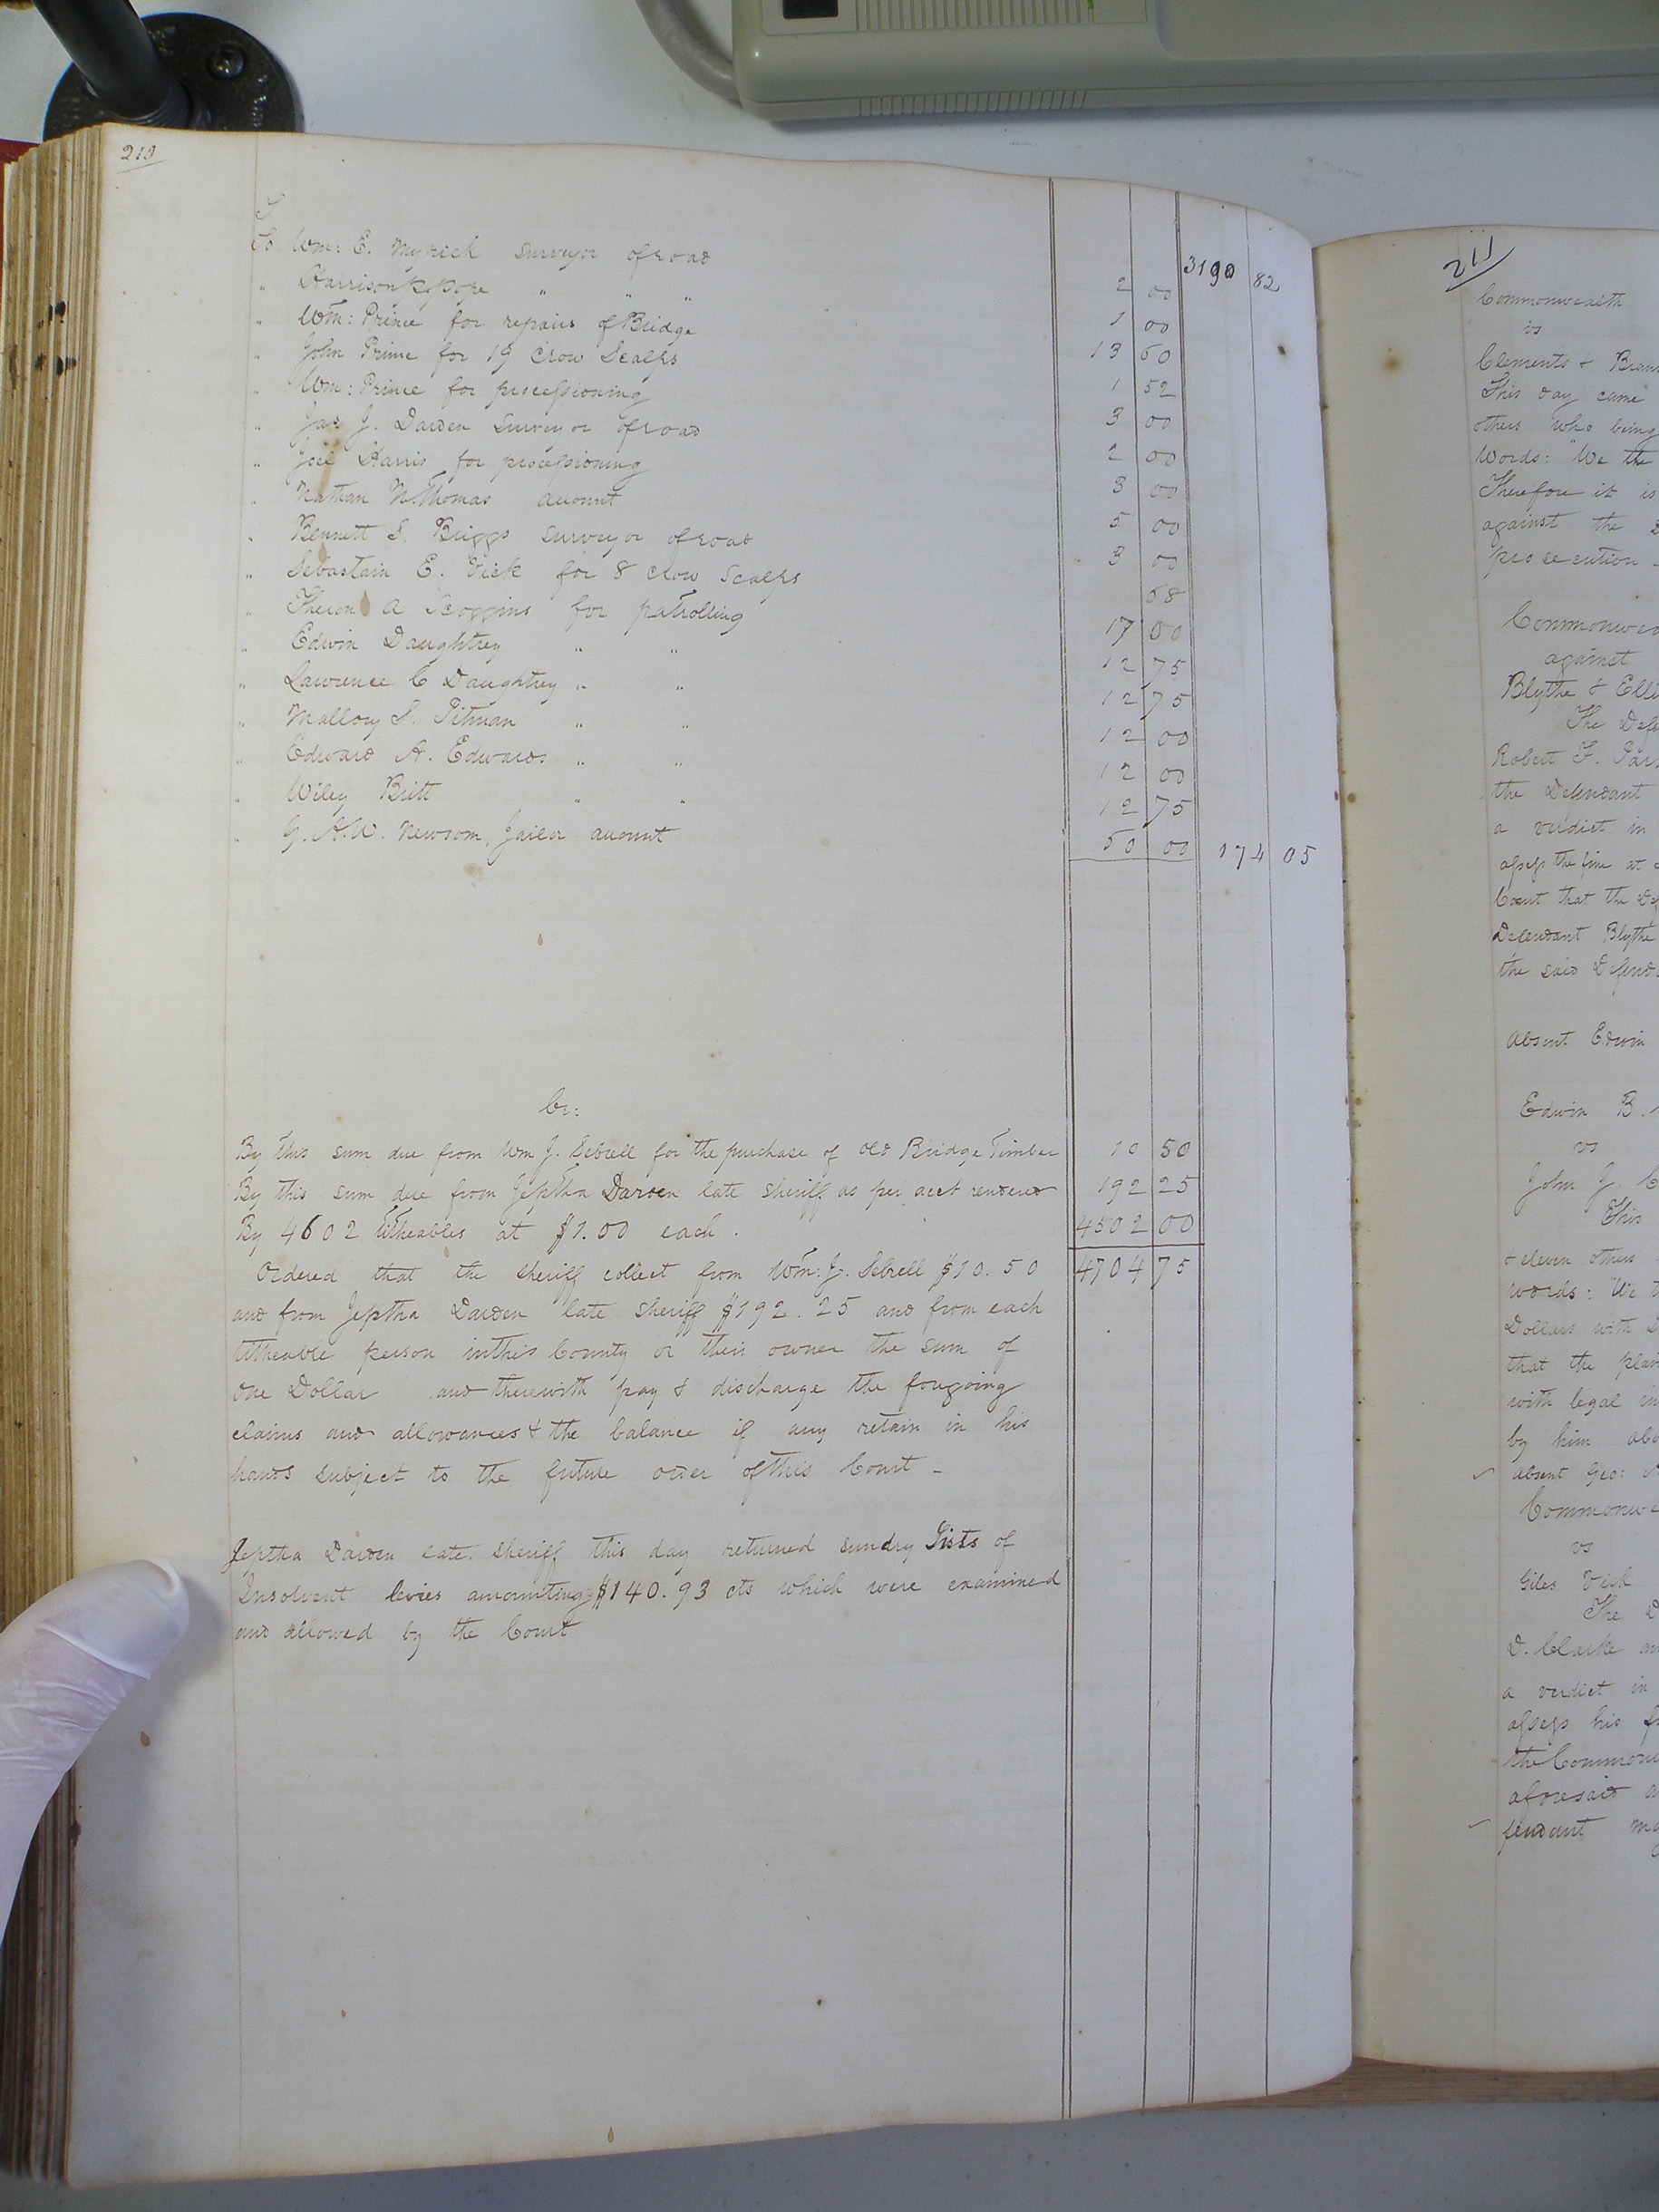 210
3190 82
To Wm: E. Myrick surveyor of road 2 00
" Harrison P. Pope " " " 1 00
" Wm: Prince for repairs of Bridge 13 50
" John Prince for 19 Crow Scalps 1 52
" Wm: Prince for processioning 3 00
" Jas. J. Darden Surveyor of road 2 00
" Joel Harris for processioning 3 00
" Nathan N. Thomas account 5 00
" Bennett S. Briggs surveyor of road 3 00
" Sebastain E. Vick for 8 crow Scalps 68
" Theron A Scoggins for patrolling 17 00
" Edwin Daughtrey " " 12 75
" Lawrence C Daughtrey " " 12 75
" Mallory S. Pitman " " 12 00
" Edward A. Edwards " " 12 00
" Wiley Britt " " 12 75
" G. A. W. Newsom, Jailor account 50 00 174 05
Cr:
By this sum due from Wm J. Sebrell for the purchase of old Bridge Timber 10 50
By this sum due from Jeptha Darden late sheriff as per acct rendered 192 25
By 4602 titheables at $1.00 each. 4502 00
Ordered that the sheriff collect from Wm: J. Sebrell $10.50 4704 75
and from Jeptha Darden late sheriff $192.25 and from each
titheable person in this County or their owner the sum of
one Dollar and therewith pay & discharge the foregoing
claims and allowances & the balance if any retain in his
hands subject to the future order of this Court -
Jeptha Darden late sheriff this day returned sundry Lists of
Insolvent levies amounting $140.93 cts which were examined
and allowed by the Court
211
Commonwealth
vs
Clements &
This day came
others who being
Words: "We the
Therefore it is
against the
prosecution -
against
Blythe &
The
Robert F.
the Defendant
a verdict in
assess the fine at
Court that the
Defendant Blythe
the said
Absent Edwin
Edwin B.
vs
John J.
This
& eleven others
words: "We
Dollars with
that the
with legal
by him
absent Geo:
vs
Giles Vick
The
D. Clarke
a verdict in
assess his
the
aforesaid
fendant